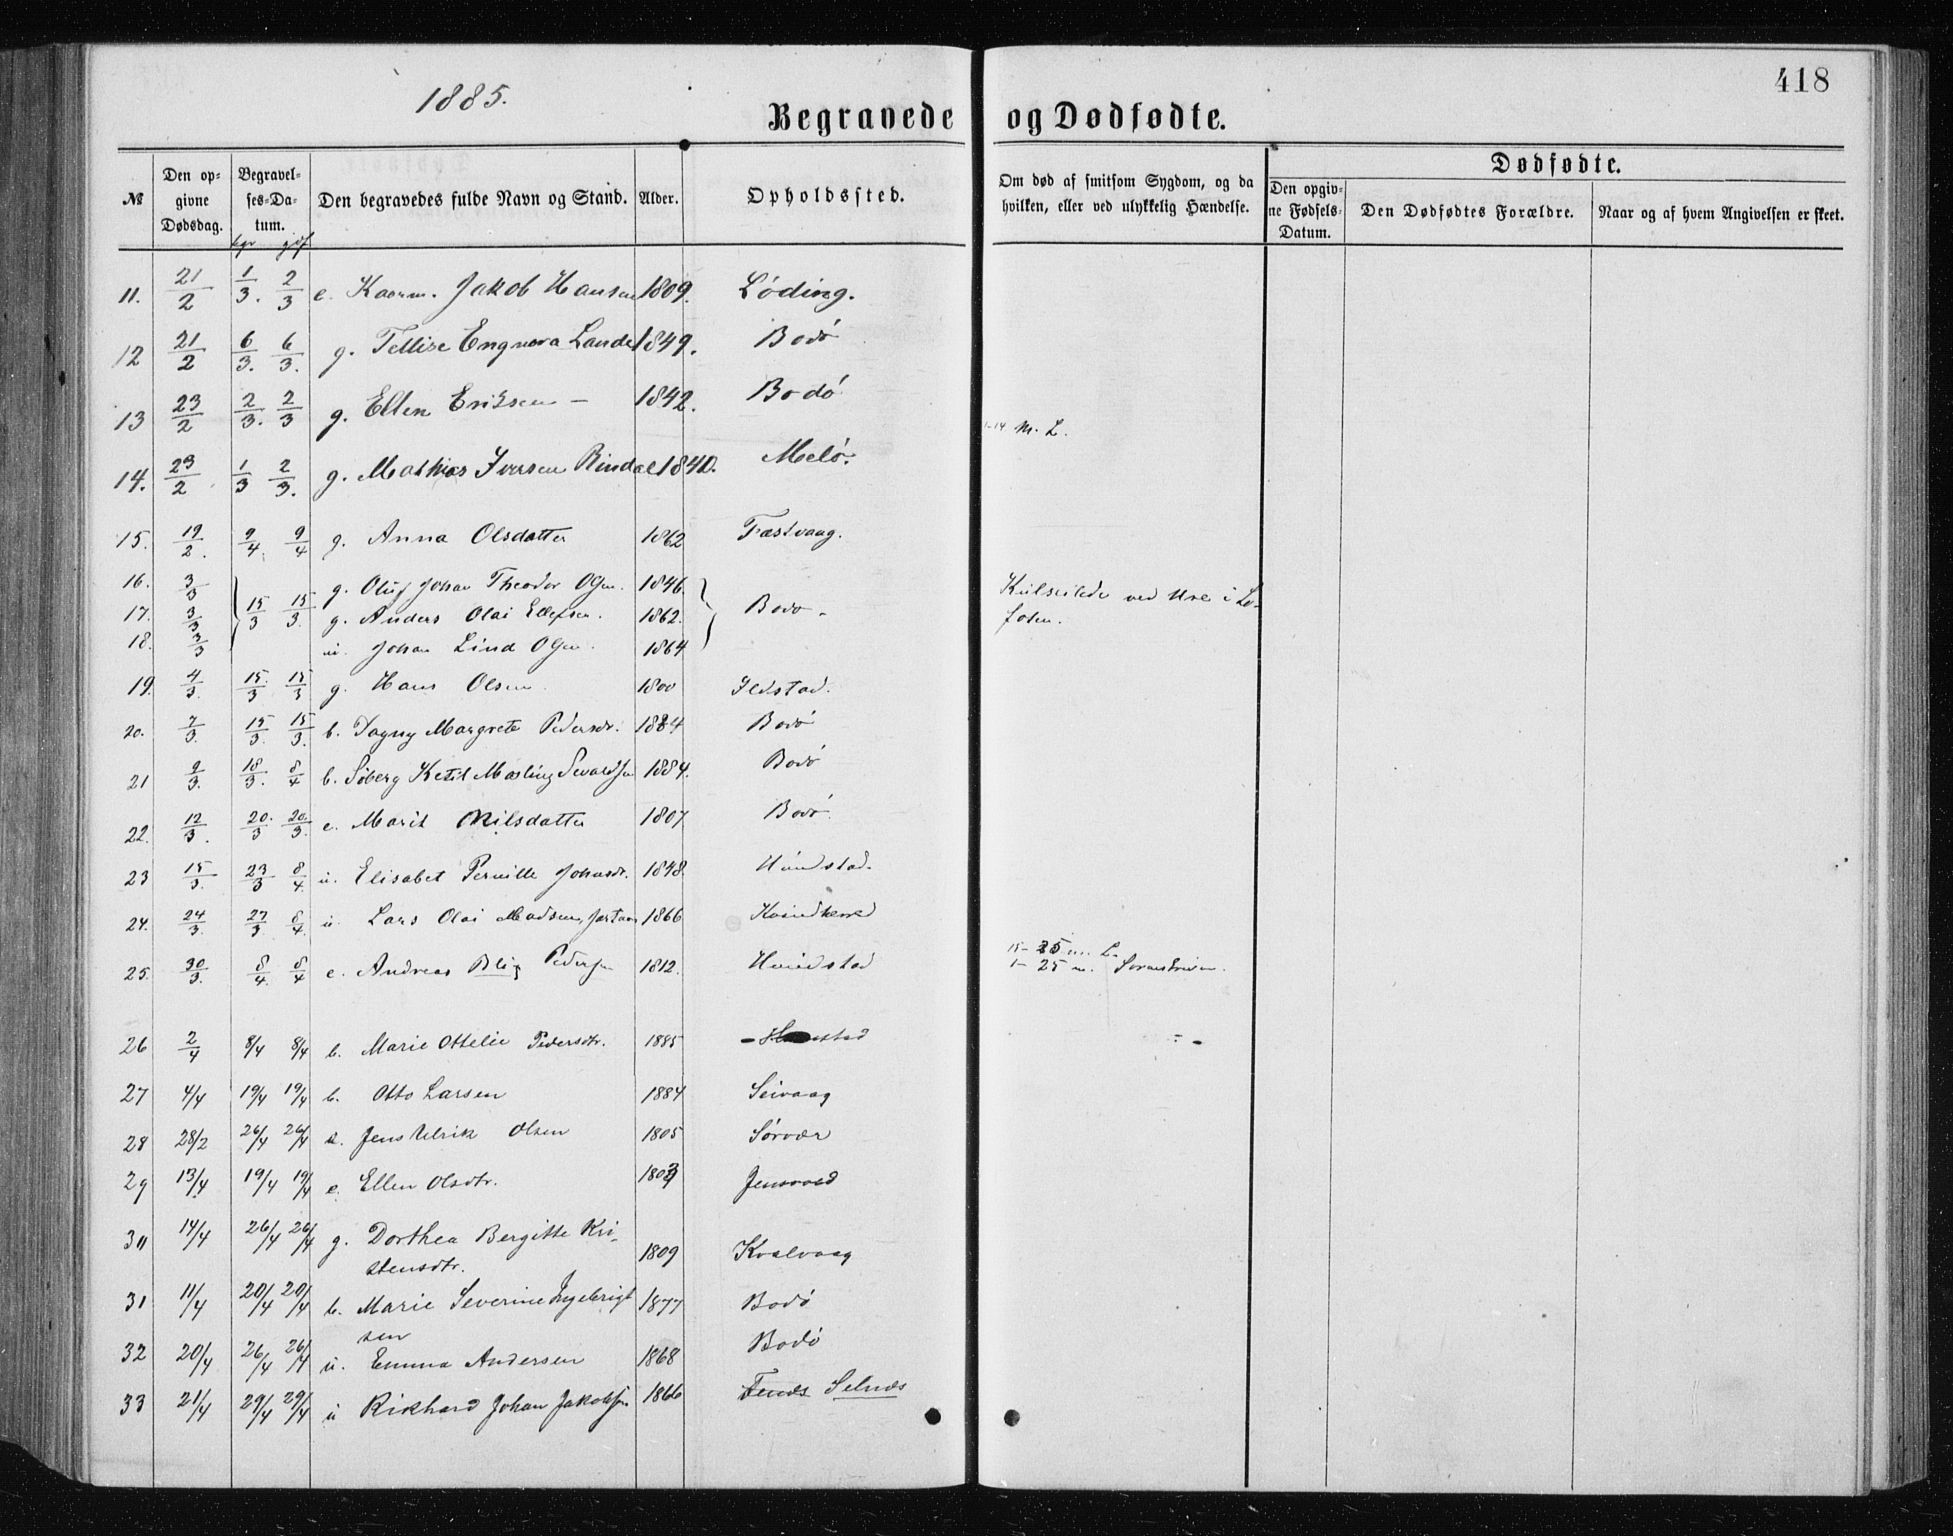 418
1885.
Begravede og Dødfødte.
№ Den opgivne Dødsdag. Begravelses-Datum. Den begravedes fulde Navn og Stand. Alder. Opholdssted. Om død af smitsom Sygdom, og da hvilken, eller ved ulykkelig Hændelse. Dødfødte.
Den opgivne Fødsels-Datum. Den Dødfødtes Forældre. Naar og af hvem Angivelsen er skeet.
11. 21/2 1/3. 2/3 e. Jakob Hansen 1809. Løding.
12 21/2 6/3. 6/3. g. Engnora Lande 1849. Bodø
13 23/2 2/3. 2/3 g. Ellen Eriksen – 1842. Bodø
1-14 m. L.
14. 23/2 1/3 2/3. g. Mathias Iversen Rindal 1840. Melø.
15. 19/2. 9/4. 9/4 g. Anna Olsdatter 1862 Fæstvaag.
16. 3/3 g. Oluf Johan Theodor Olsen. 1846.
17. 3/3 15/3 15/3. g. Anders Olai Ellefsen. 1862. Bodø. Kulseilede ved Ure i Lo-
18. 3/3 u. Johan Lind Olsen. 1864 foten.
19. 4/3. 15/3 15/3 g. Hans Olsen. 1800 Ildstad.
20. 7/3. 15/3. 15/3. b. Dagny Margrete Pedersdr. 1884 Bodø
21 9/3. 18/3. 8/4 b. Søberg Ketil Sevaldsen 1884. Bodø
22. 12/3. 20./3 20./3. e. Marit Nilsdatter 1807 Bodø
23 15/3. 23/3 8/4. u. Elisabet Pernille Johnsdr. 1848. Hundstad.
24. 24/3. 27/3 8/4. u. Lars Olai Madsen, 1866
25. 30/3. 8/4. 8/4 e. Andreas Blix Pedersen 1812. Hundstad
15-25 m. L.
1-25 m.
26 2/4 8/4 8/4 b. Marie Ottelie Pedersdtr. 1885
27 4/4 19/4 19/4 b. Otto Larsen 1884 Seivaag
28 28/2 26/4 26/4 e. Jens Ulrik Olsen 1805 Sørvær
29 13/4 19/4 19/4 e. Ellen Olsdtr. 1803 Jensvold
30 14/4 26/4 26/4 g. Dorthea Bergitte Kri-
stensdtr. 1809 Kvalvaag
31 11/4 20/4 20/4 b. Marie Severine Ingebrigt
sen 1877 Bodø
32 20/4 26/4 26/4 u. Emma Andersen 1868 Bodø
33 21/4 29/4 29/4 u Rikhard Johan Jakobsen 1866 Selnæs